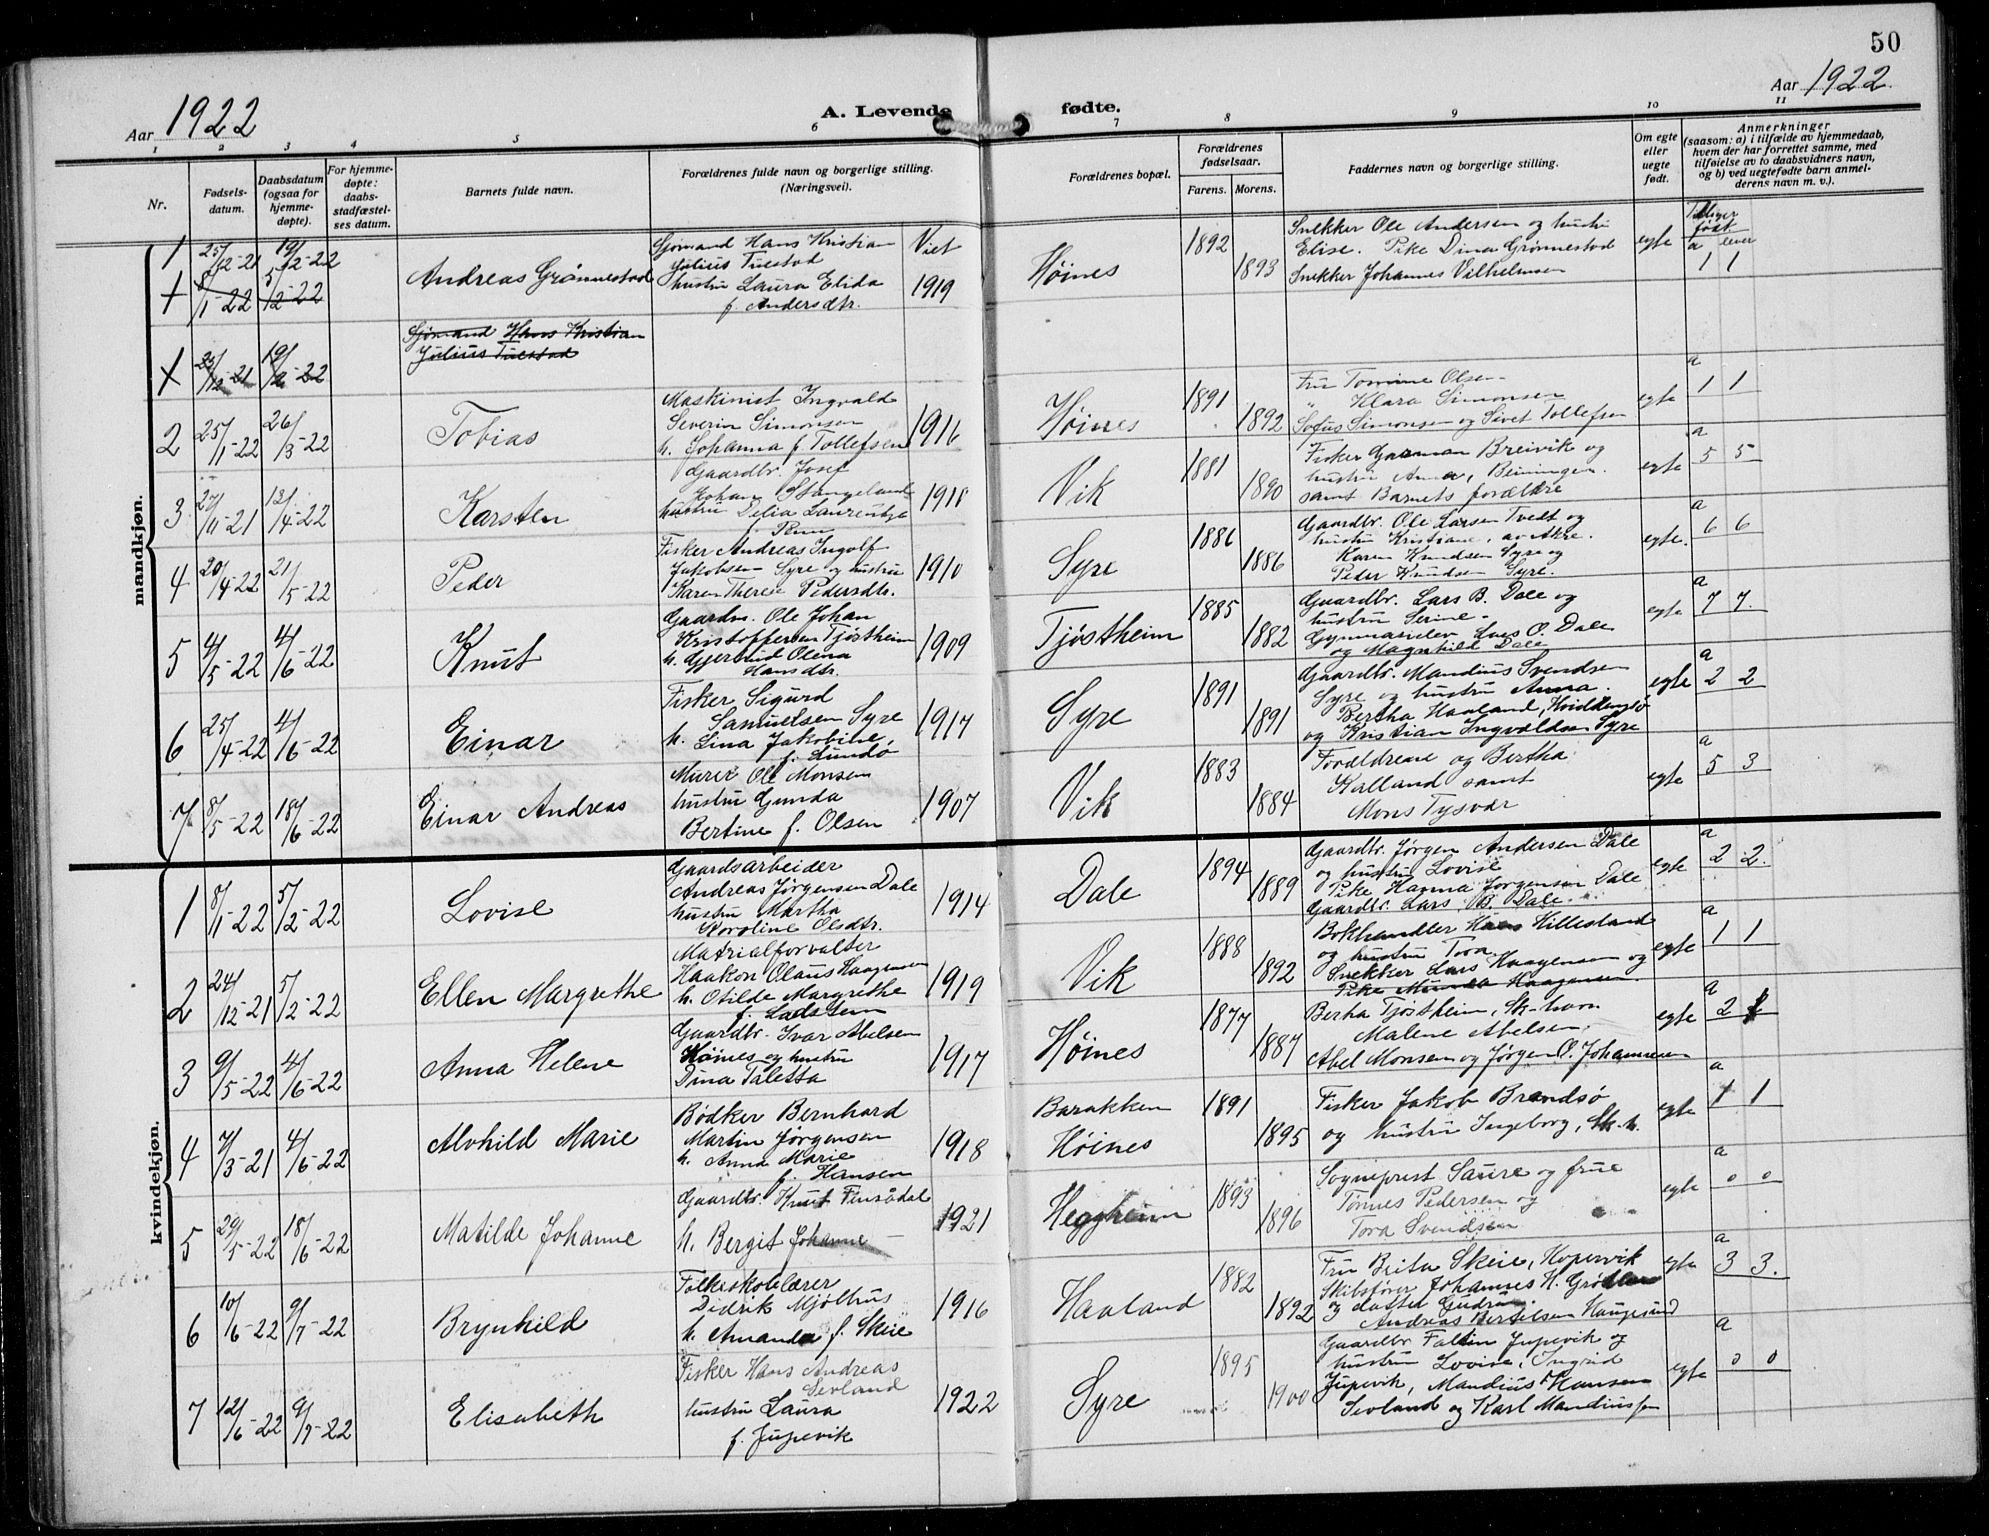 50
Aar 1922
A. Levende fødte.
Aar 1922
1 2 3 4 5 6 7 8 9 10 11
Nr.
Fødsels-
datum.
Daabsdatum
(ogsaa for
hjemme-
døpte).
For hjemme-
døpte:
daabs-
stadfæstel-
ses datum.
Barnets fulde navn.
Forældrenes fulde navn og borgerlige stilling.
(Næringsvei).
Forældrenes bopæl.
Forældrenes
fødselsaar.
Farens. Morens.
Faddernes navn og borgerlige stilling.
Om egte
eller
uegte
født.
Anmerkninger
(saasom: a) i tilfælde av hjemmedaab,
hvem der har forrettet samme, med
tilføielse av to daabsvidners navn,
og b) ved uegtefødte barn anmel-
derens navn m. v.).
mandkjøn.
1 25/12-21 19/2-22 Andreas Grønnestad
Sjømand Hans Kristian
Julius Tuestad
hustru Laura Elida
f. Andersdtr.
Viet
1919
Høines 1892 1893
Snekker Ole Andersen og hustru
Elise. Pike Dina Grønnestad
Snekker Johannes Vilhelmsen
egte
Tidligere
født
a lever
1 1
1-22 12-22
Sjømand Hans Kristian
Julius Tuestad
12-21 19/2-22
2 25/1-22 26/3-22 Tobias
Maskinist Ingvald
Severin Simonsen
h. Johanna f. Tollefsen
1916
Høines 1891 1892
Fru Tomine Olsen
" Klara Simonsen
Sofus Simonsen og Sivert Tollefsen
egte
a
1 1
3 27/11-21 12/4-22 Karsten
Gaardbr. Josef
Johan Stangeland
hustru Delia
1918
Vik 1881 1890
Fisker Gaarman Breivik og
hustru Anna, Beiningen.
samt Barnets forældre
egte
a
5 5
4 20/4-22 21/5-22 Peder
Fisker Andreas Ingolf
Jakobsen Syre og hustru
Karen Therese Pedersdtr.
1910
Syre 1886 1886
Gaardbr. Ole Larsen Tvedt og
hustru Kristiane, av Akre.
Karen Knudsen Syre og
Peder Knudsen Syre.
egte.
a
6 6
5 4/5-22 4/6-22 Knut
Gaardm. Ole Johan
Kristoffersen Tjøstheim
h. Gjertrud Olena
Hansdtr.
1909
Tjøstheim 1885 1882
Gaardbr. Lars B. Dale og
hustru Serine.
Gymnasielev Lars O. Dale
og Magnhild Dale
egte
a
7 7.
6 25/4-22 4/6-22 Einar
Fisker Sigurd
Samuelsen Syre
h. Lina Jakobine,
f. Lundø
1917
Syre 1891 1891
Gaardbr. Mandius Svendsen
Syre og hustru Anna.
Bertha Haaland,
og Kristian Ingvaldsen Syre
egte
a
2 2
7 8/5-22 18/6-22 Einar Andreas
Murer Ole Monsen
hustru Gunda
Bertine f. Olsen
1907
Vik 1883 1884
Forældrene og Bertha
Kalland samt
Mons Tysvær
egte
a
5 3
kvindekjøn.
1 8/1-22 5/2-22 Lovise
Gaardsarbeider
Andreas Jørgensen Dale
hustru Martha
Karoline Olsdtr.
1914
Dale 1894 1889
Gaardbr. Jørgen Andersen Dale
og hustru Lovise
Pike Hanna Jørgensen Dale
Gaardbr. Lars B. Dale.
egte
a
2 2.
2 24/12-21 5/2-22 Ellen Margrethe
Matrialforvalter
Haakon Olaus Haagensen
h. Otilde Margrethe
1919
Vik 1888 1892
Bokhandler Hans Hillestad
og hustru Tora
Snekker Lars Haagensen og
Pike Haagensen.
egte
a
1 1
3 9/5-22 4/6-22 Anna Helene
Gaardbr. Ivar Abelsen
Høines og hustru
Dina Taletta
1917
Høines 1877 1887
Bertha Tjøstheim, Sk-havn
Malene Abelsen,
Abel Monsen og Jørgen O. Johannesen
egte
a
2
4 7/3-21 4/6-22 Alvhild Marie
Bødker Bernhard
Martin Jørgensen
h. Anna Marie
f. Hansen
1918
Barakken
Høines 1891 1895
Fisker Jakob Brandsø
og hustru Ingeborg, Sk.h.
egte
a
1 1
5 29/5-22 18/6-22 Matilde Johanne
Gaardbr. Knut Finsådal
h. Bergit Johanne
1921
Heggheim 1893 1896
Sogneprest Saure og frue
Tønnes Pedersen og
Tora Svendsen
egte
a
0 0
6 10/6-22 9/7-22 Brynhild
Folkeskolelærer
Didrik Mjølhus
h. Amanda f. Skeie
1916
Haaland 1882 1892
Fru Brita Skeie, Kopervik
Skibsfører Johannes H.
og datter Gudrun
Andreas Bertelsen Haugesund
egte
a
3 3.
7 12/6-22 9/7-22 Elisabeth
Fisker Hans Andreas
Sevland
hustru Laura
f. Jupevik
1922
Syre 1895 1900
Gaardbr Faltin Jupevik og
hustru Lovise, Ingrid
Jupevik, Mandius Hansen
Sevland og Karl Mandiussen
egte
a
0 0